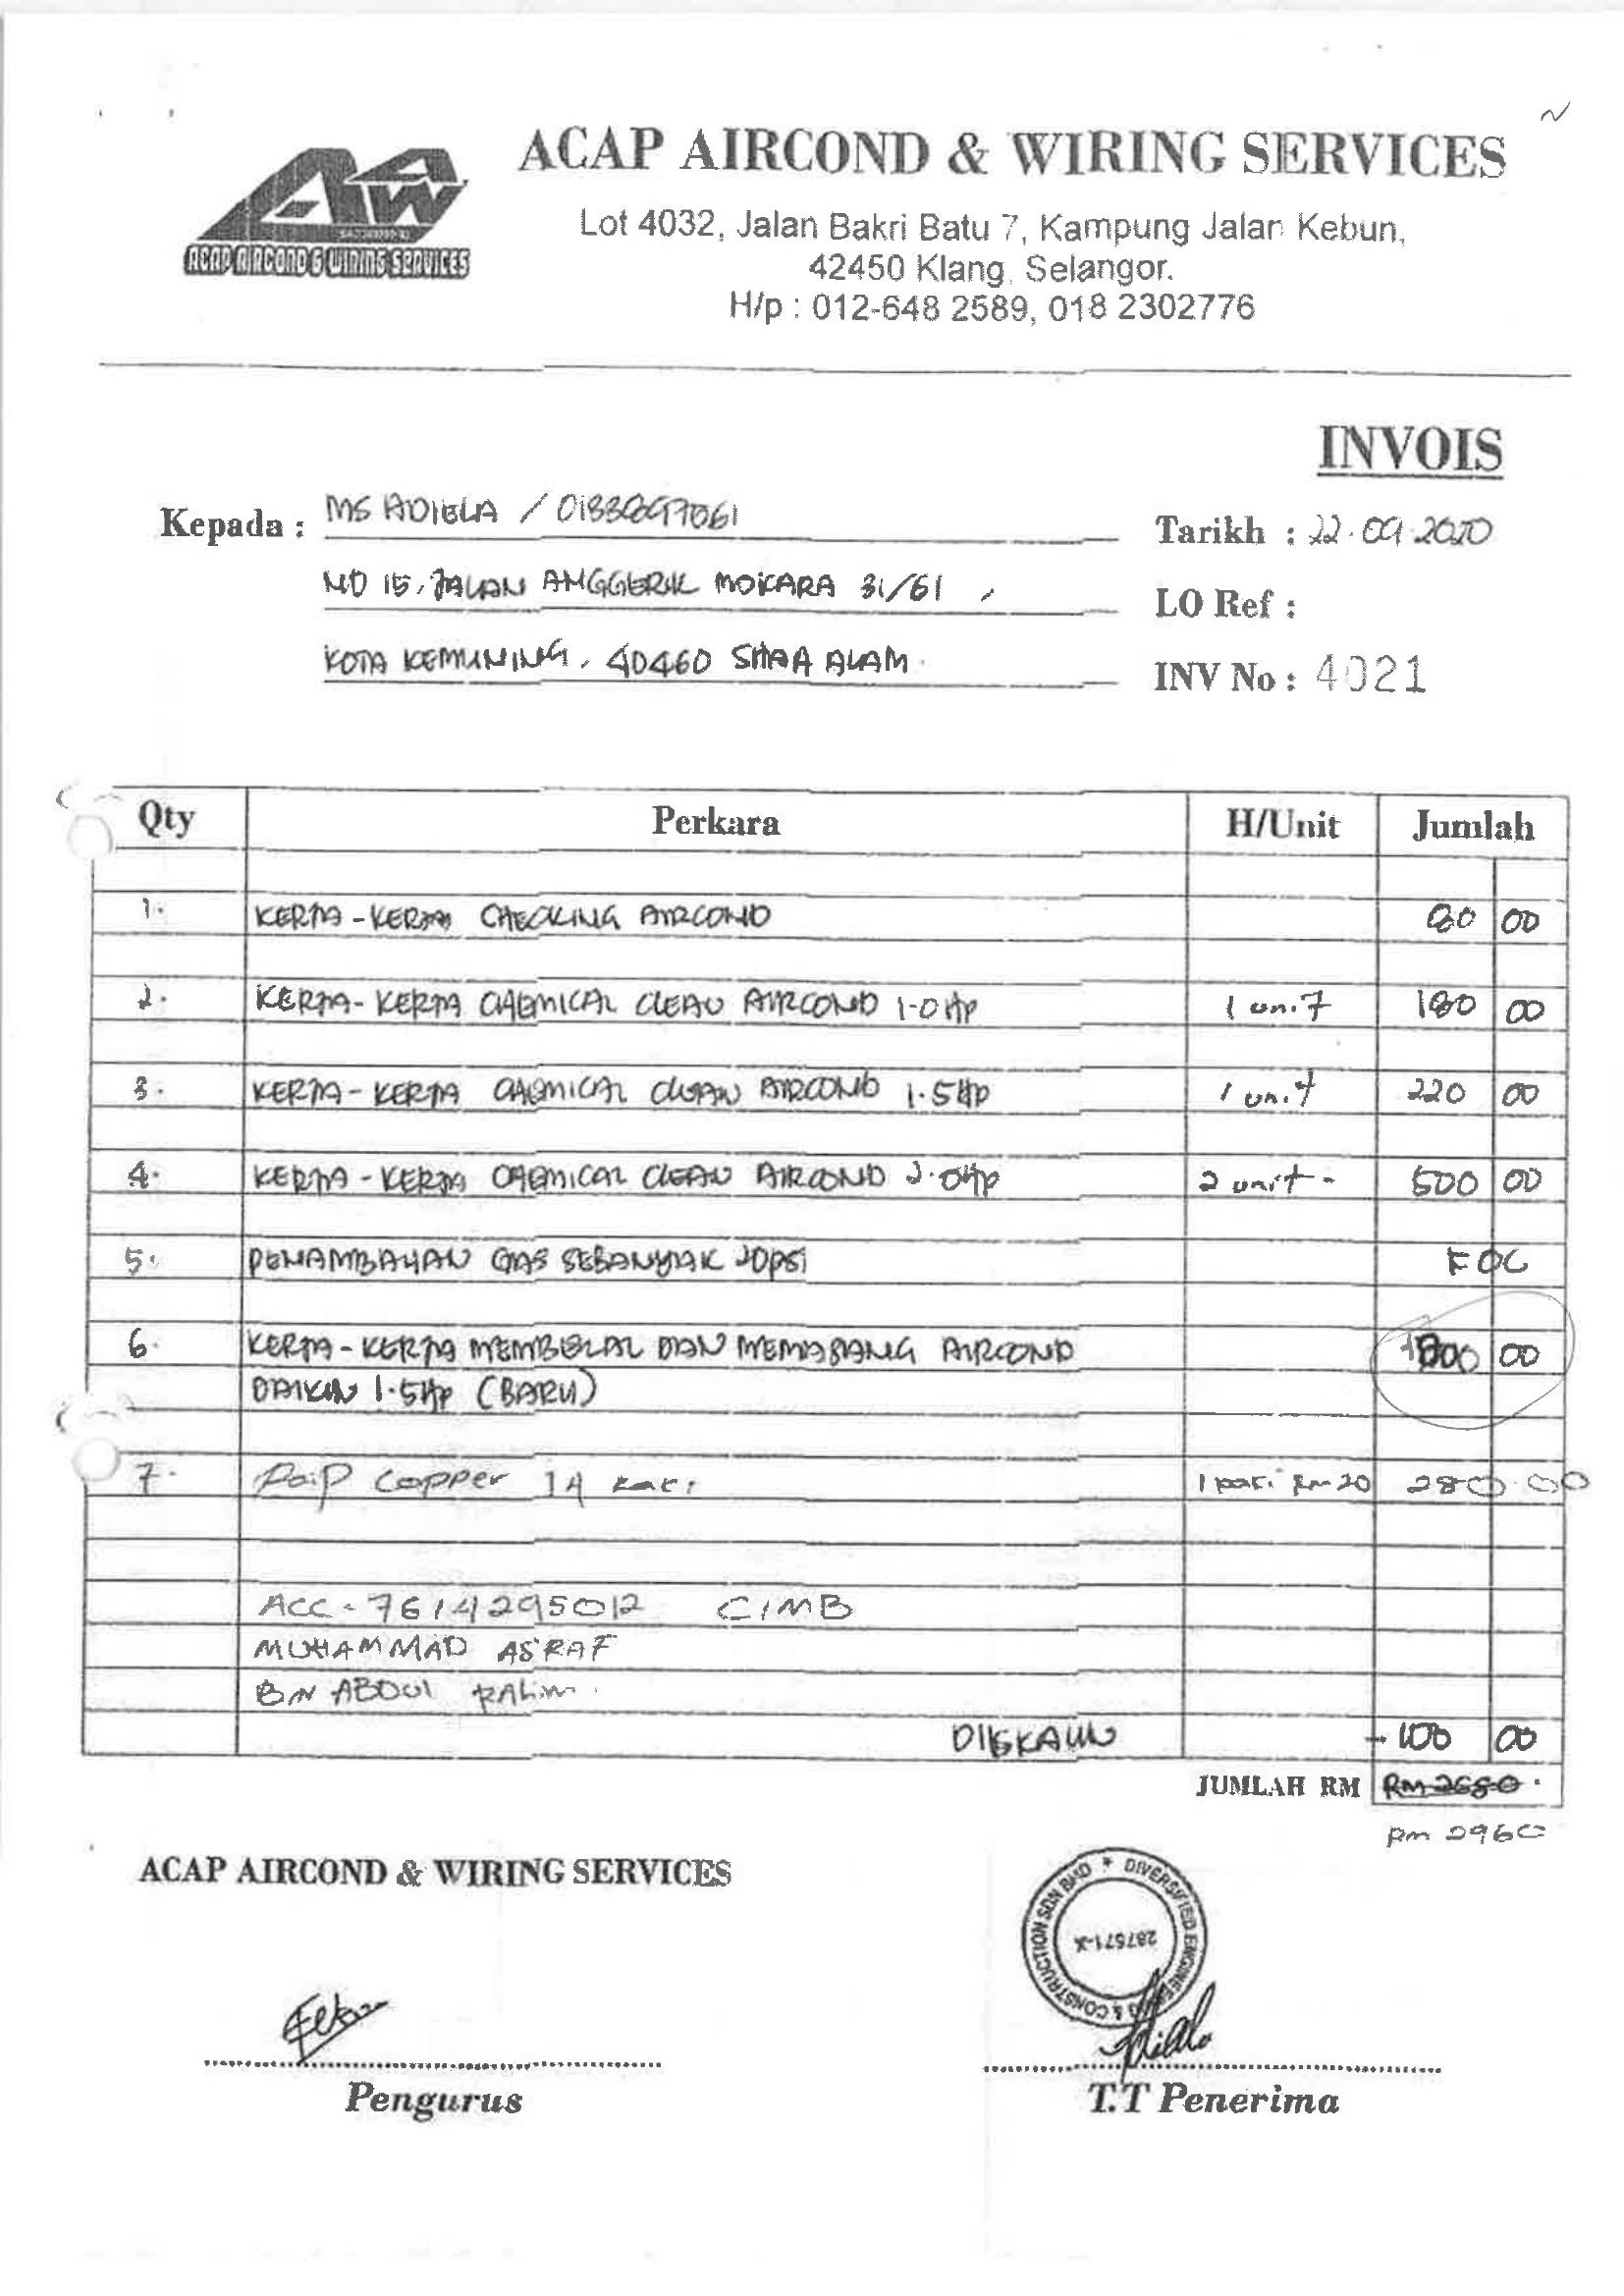 ACAP AIRCOND & WIRING SERVICES
ACAP AIRCOND & WIRING SERVICES
Lot 4032, Jalan Bakri Batu 7, Kampung Jalan Kebun,
42450 Klang, Selangor.
H/p : 012-648 2589, 018 2302776
INVOIS
Kepada : MS ADIELA /
Tarikh : 22.09.2020
NO 15, JALAN ANGGERIK MOKARA 31/61,
LO Ref :
KOTA KEMUNING, 40460 SHAH ALAM.
INV No : 4021
Qty Perkara H/Unit Jumlah
1. KERJA-KERJA CHECKING AIRCOND 80 00
2. KERJA-KERJA CHEMICAL CLEAN AIRCOND 1.0 Hp 1 unit 180 00
3. KERJA-KERJA CHEMICAL CLEAN AIRCOND 1.5 Hp 1 unit 220 00
4. KERJA-KERJA CHEMICAL CLEAN AIRCOND 2.0 Hp 2 unit - 500 00
5. PENAMBAHAN GAS SEBANYAK 20psi FOC
6. KERJA-KERJA MEMBEKAL DAN MEMASANG AIRCOND 00
DAIKIN 1.5 Hp (BARU)
7. Paip Copper 14 kaki 1 kaki Rm 20 280.00
ACC - 7614295012 CIMB
MUHAMMAD ASRAF
BIN ABDUL RAHIM
DISKAUN - 100 00
JUMLAH RM RM 2680.
Rm 2960
ACAP AIRCOND & WIRING SERVICES
DIVERSIFIED ENGINEERING & CONSTRUCTION SDN BHD *
287571-X
Pengurus
T.T Penerima